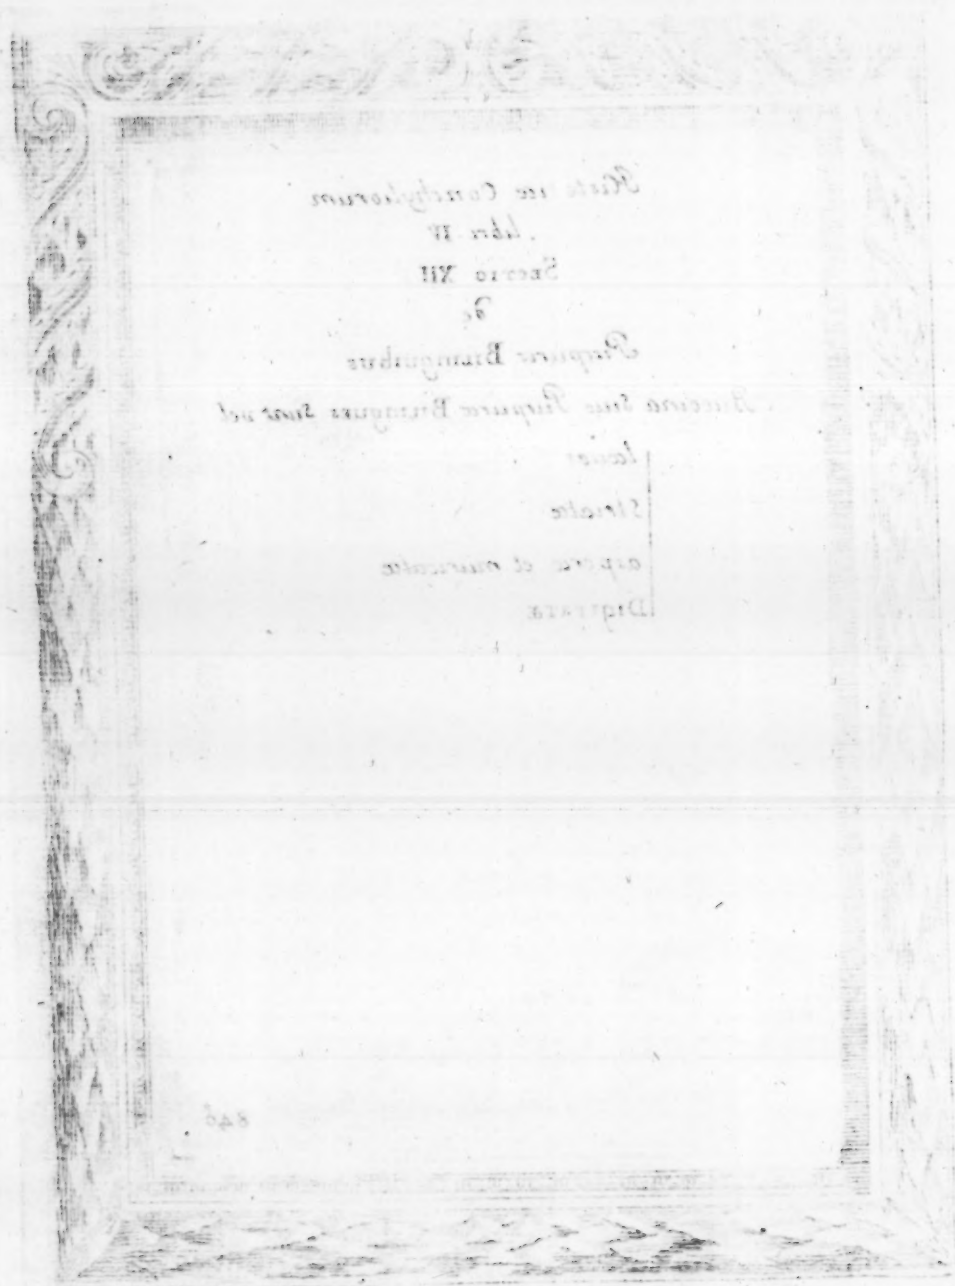 Histo iæ Conchyliorum
libri IV
Sectio XII
de
Purpuris Biunguibus
Buccina sive Purpuræ Biungues sunt vel
læves
striatæ
asperæ et muricatæ
Digitatæ
846